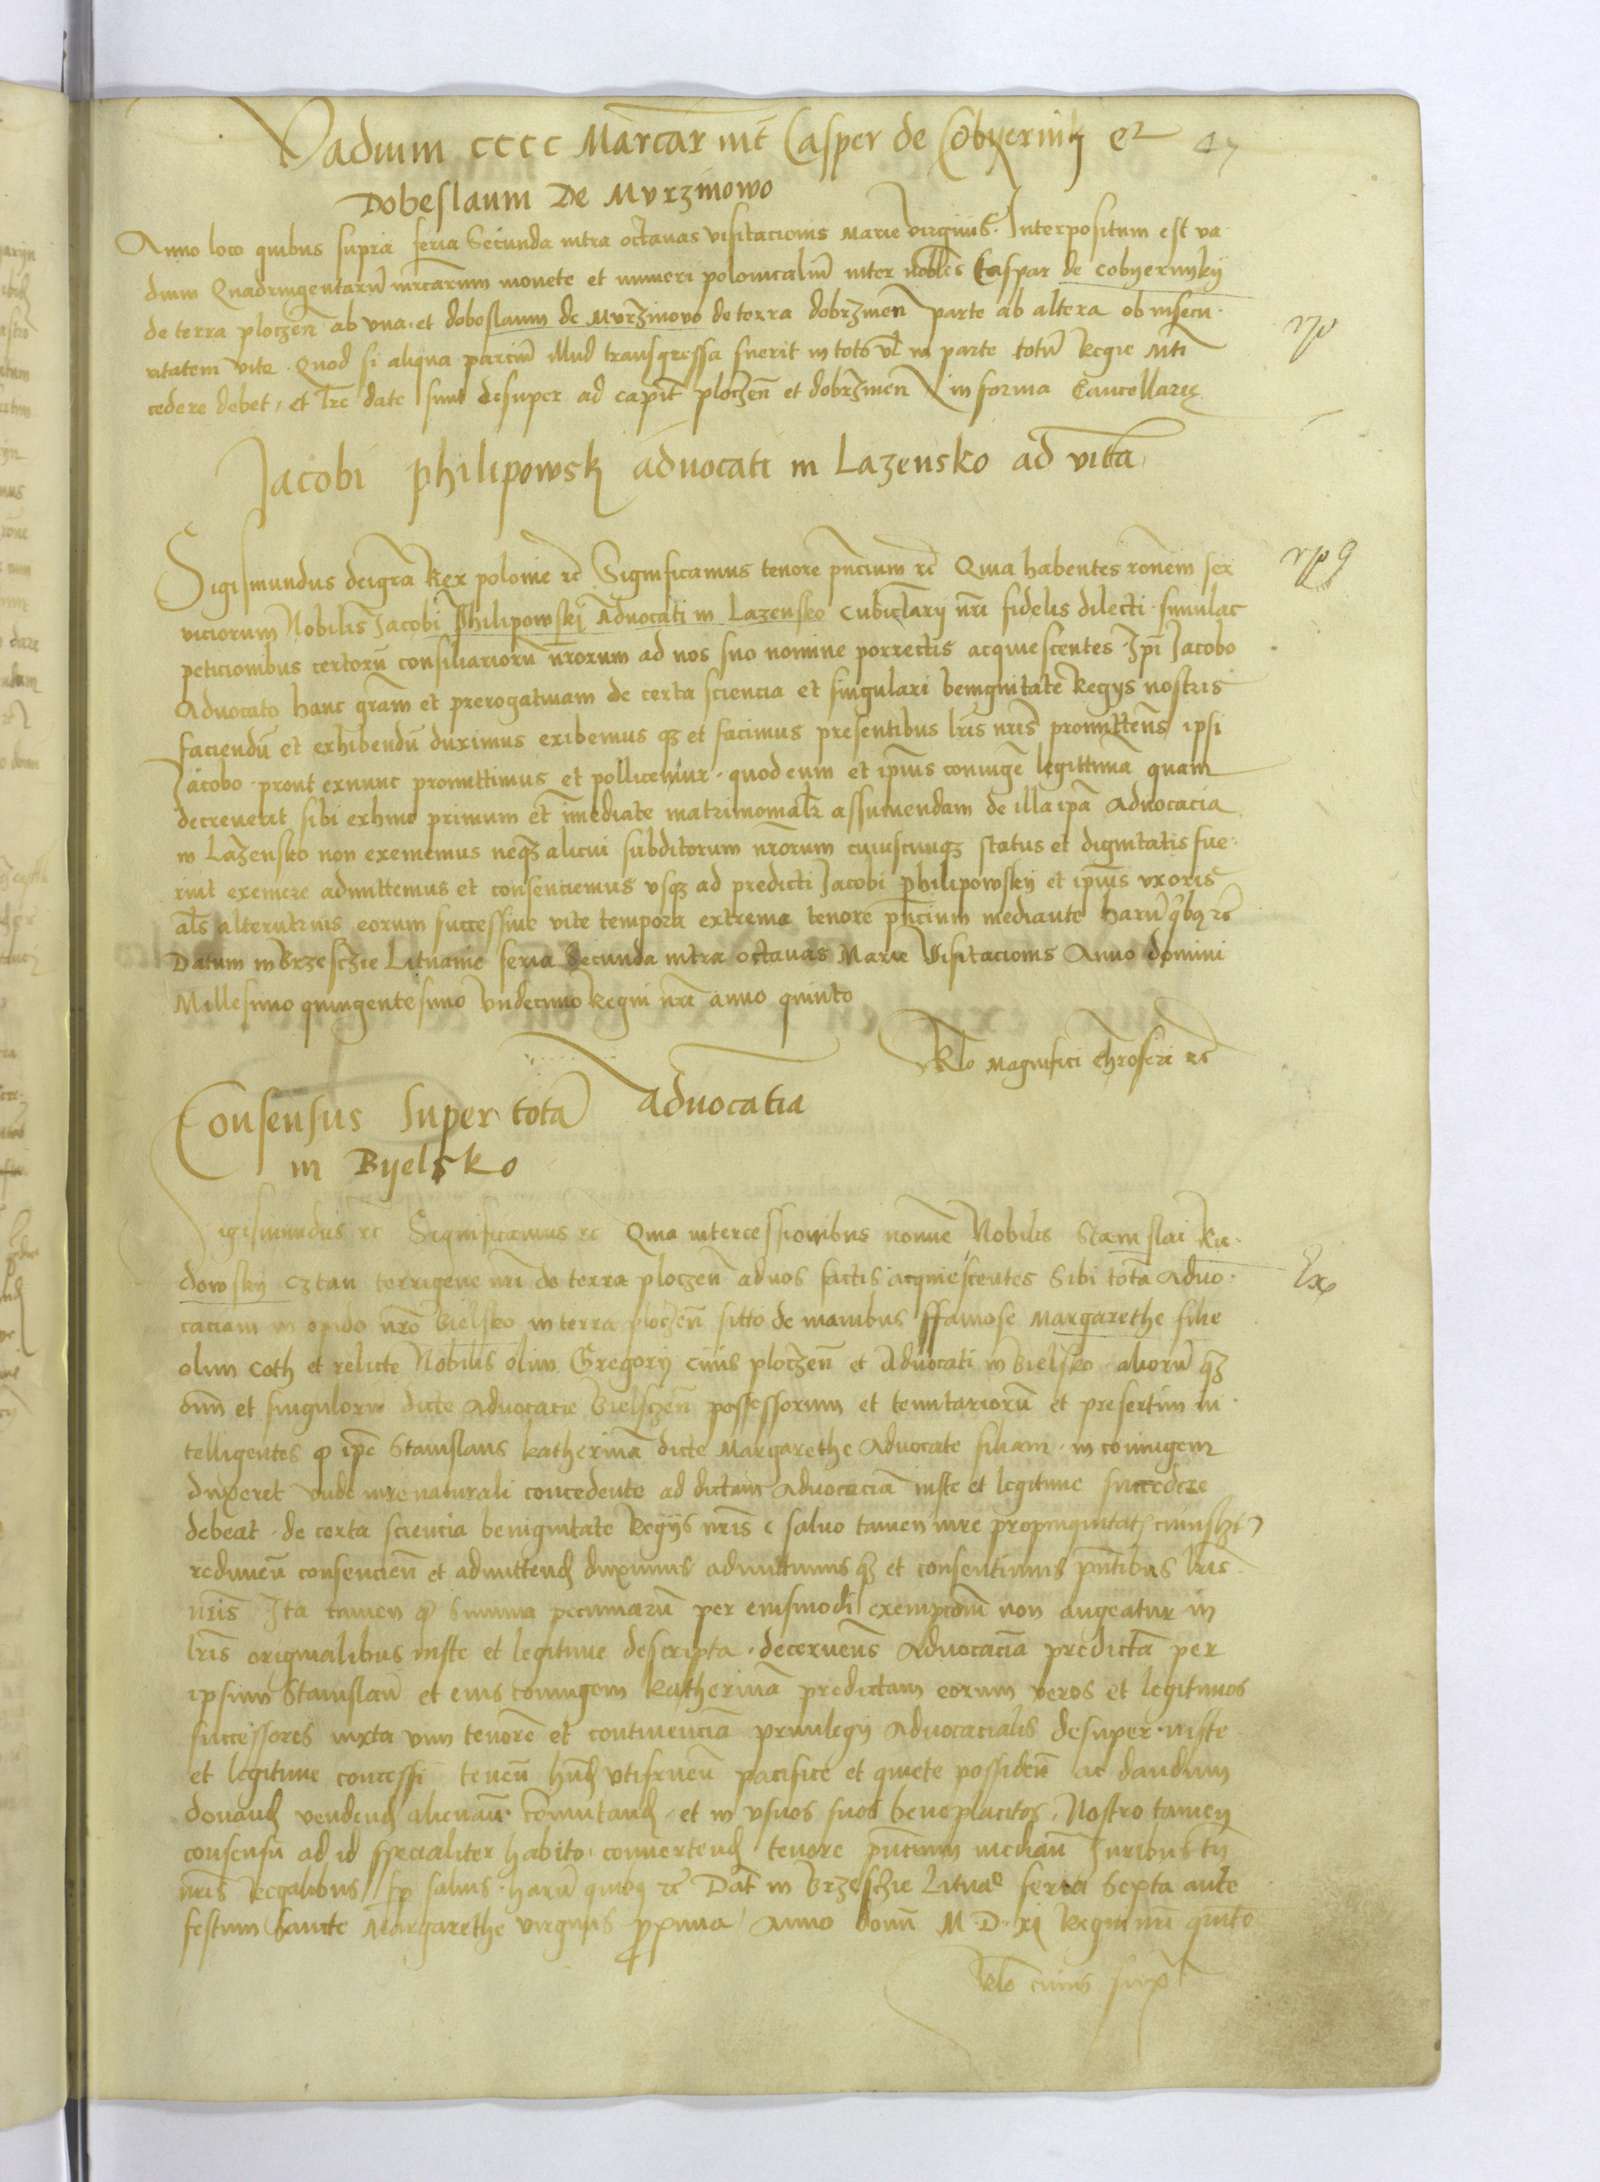 Vadium CCCC Marcar int Casper de Cobyerniky et 47
Dobeslaum De Mvrzinowo
Anno loco quibus supra feria Secunda intra octauas visitacionis Marie virginis. Interpositum est va
dium Quadringentarū mrcarum monete et numeri polonicaliū inter nobiles Caspar de Cobyernyky
de terra ploczen̄ ab vna et doboslaum de Mvrzinovo de terra dobrzinen̄ parte ab altera ob insecu
ritatem vite. Quod si aliqua parciū illud transgressa fuerit in toto vl in parte totū Regie Mti
cedere debet, et lre date sunt desuper ad capit ploczen̄ et dobrzinen̄ in forma Cancellarie
Jacobi philipowsky aduocati in Lazensko ad vitā
Sigismundus dei grā Rex polonie rc Significamus tenore pn̄cium rc Quia habentes rōnem ser
viciorum Nobilis Jacobi Philipowski Aduocati in Lazensko cubiclarij nri fidelis dilecti. simulac
peticionibus certorū consiliariorū nr̄orum ad nos suo nomine porrectis acquiescentes. Ipi Jacobo
Aduocato hanc grām et prerogatiuam de certa sciencia et singulari benignitate Regijs nostris
faciendū et exhibendū duximus exibemus qz et facimus presentibus lris nris promitten̄s ipsi
Jacobo. prout exnunc promittimus et pollicemur. quod eum et ipius coniugē legittima quam
decreuerit sibi exhinc primum et īmediate matrimonialr̄ assumendam de illa ipā Aduocacia
in Lazensko non eximemus neqz alicui subditorum nr̄orum cuiuscunqz status et dignitatis fue
rint eximere admittemus et consenciemus vsqz ad predicti Jacobi philipowsky et ipius vxoris
als alterutrius eorum successiue vite tempora extrema tenore pn̄cium mediante harū qbq rc
Datum in Brzesczie Lituanie feria Secunda intra octauas Marie Visitacionis Anno domini
Millesimo quingentesimo vndecimo Regni nri anno quinto
Rlo Magnifici Chroferi rc
Consensus super totā aduocatia
in Byelsko
igismundus rc Significamus rc Quia intercessionibus nomine Nobilis Stanislai Ra
dowsky Cztan terrigene nri de terra ploczen̄ ad nos factis acquiescentes sibi totā Aduo
caciam in opido nro Bielsko in terra ploczen̄ sitto de manibus ffamose Margarethe filie
olim Coth et relicte Nobilis olim Gregorij ciuis ploczen̄ et Aduocati in Bielsko aliorū qz
om̄ et singulorū dicte Aduocacie Bielsczen̄ possessorum et tenutariorū et presertim in
telligentes q ipe Stanislaus katherinā dicte Margarethe Aduocate filiam. in coniugem
duxerit vnde iure naturali concedente ad dictam Aduocaciā iuste et legitime succedere
debeat. de certa sciencia benignitate Regijs nris salvo tamen iure propinquitatis
redimen̄ consencien̄ et admittend duximus admittimus qz et consentimus pn̄tibus lris
nris Ita tamen q Summa pecuniarū per eiusmodi exempcionē non augeatur in
lris originalibus iuste et legitime descripta. decernen̄s Aduocaciā predictā per
ipsum Stanislaū et eius coniugem katherinā predictam eorum veros et legitimos
successores iuxta vim tenorē et continenciā priuilegij Aduocacialis desuper iuste
et legitime concessi tenen̄ hn̄d vtifruen̄ pacifice et quiete possiden̄ ac dandum
donand vendend alienan̄ com̄utand et in vsuos suos beneplacitos. Nostro tamen
consensu ad id specialiter habito conuertend tenore pn̄cium median̄ Juribus tn̄
nris Regalibus sp saluis. harū quibq rc Dat in Brzesczie Litua feria Sexta ante
festum Sancte Margarethe virginis proxima Anno domi M. D. xi Regni nri quinto
Rlo cuius supra